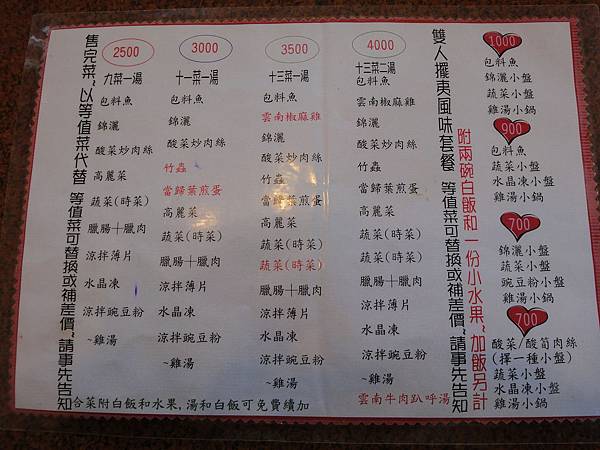 售完菜，以等值菜代替 等值菜可替換或補差價，請事先告知
2500
九菜一湯
包料魚
錦灑
酸菜炒肉絲
高麗菜
蔬菜(時菜)
臘腸＋臘肉
涼拌薄片
水晶凍
涼拌豌豆粉
~雞湯
3000
十一菜一湯
包料魚
錦灑
酸菜炒肉絲
竹蟲
當歸葉煎蛋
高麗菜
蔬菜(時菜)
臘腸＋臘肉
涼拌薄片
水晶凍
涼拌豌豆粉
~雞湯
3500
十三菜一湯
包料魚
雲南椒麻雞
錦灑
酸菜炒肉絲
竹蟲
當歸葉煎蛋
高麗菜
蔬菜(時菜)
蔬菜(時菜)
臘腸＋臘肉
涼拌薄片
水晶凍
涼拌豌豆粉
~雞湯
4000
十三菜二湯
包料魚
雲南椒麻雞
錦灑
酸菜炒肉絲
竹蟲
當歸葉煎蛋
高麗菜
蔬菜(時菜)
蔬菜(時菜)
臘腸＋臘肉
涼拌薄片
水晶凍
涼拌豌豆粉
~雞湯
雲南牛肉趴呼湯
合菜附白飯和水果,湯和白飯可免費續加
雙人擺夷風味套餐 等值菜可替換或補差價，請事先告知
附兩碗白飯和一份小水果，加飯另計
1000
包料魚
錦灑小盤
蔬菜小盤
雞湯小鍋
900
包料魚
蔬菜小盤
水晶凍小盤
雞湯小鍋
700
錦灑小盤
蔬菜小盤
豌豆粉小盤
雞湯小鍋
700
酸菜/酸筍肉絲
(擇一種小盤)
蔬菜小盤
水晶凍小盤
雞湯小鍋